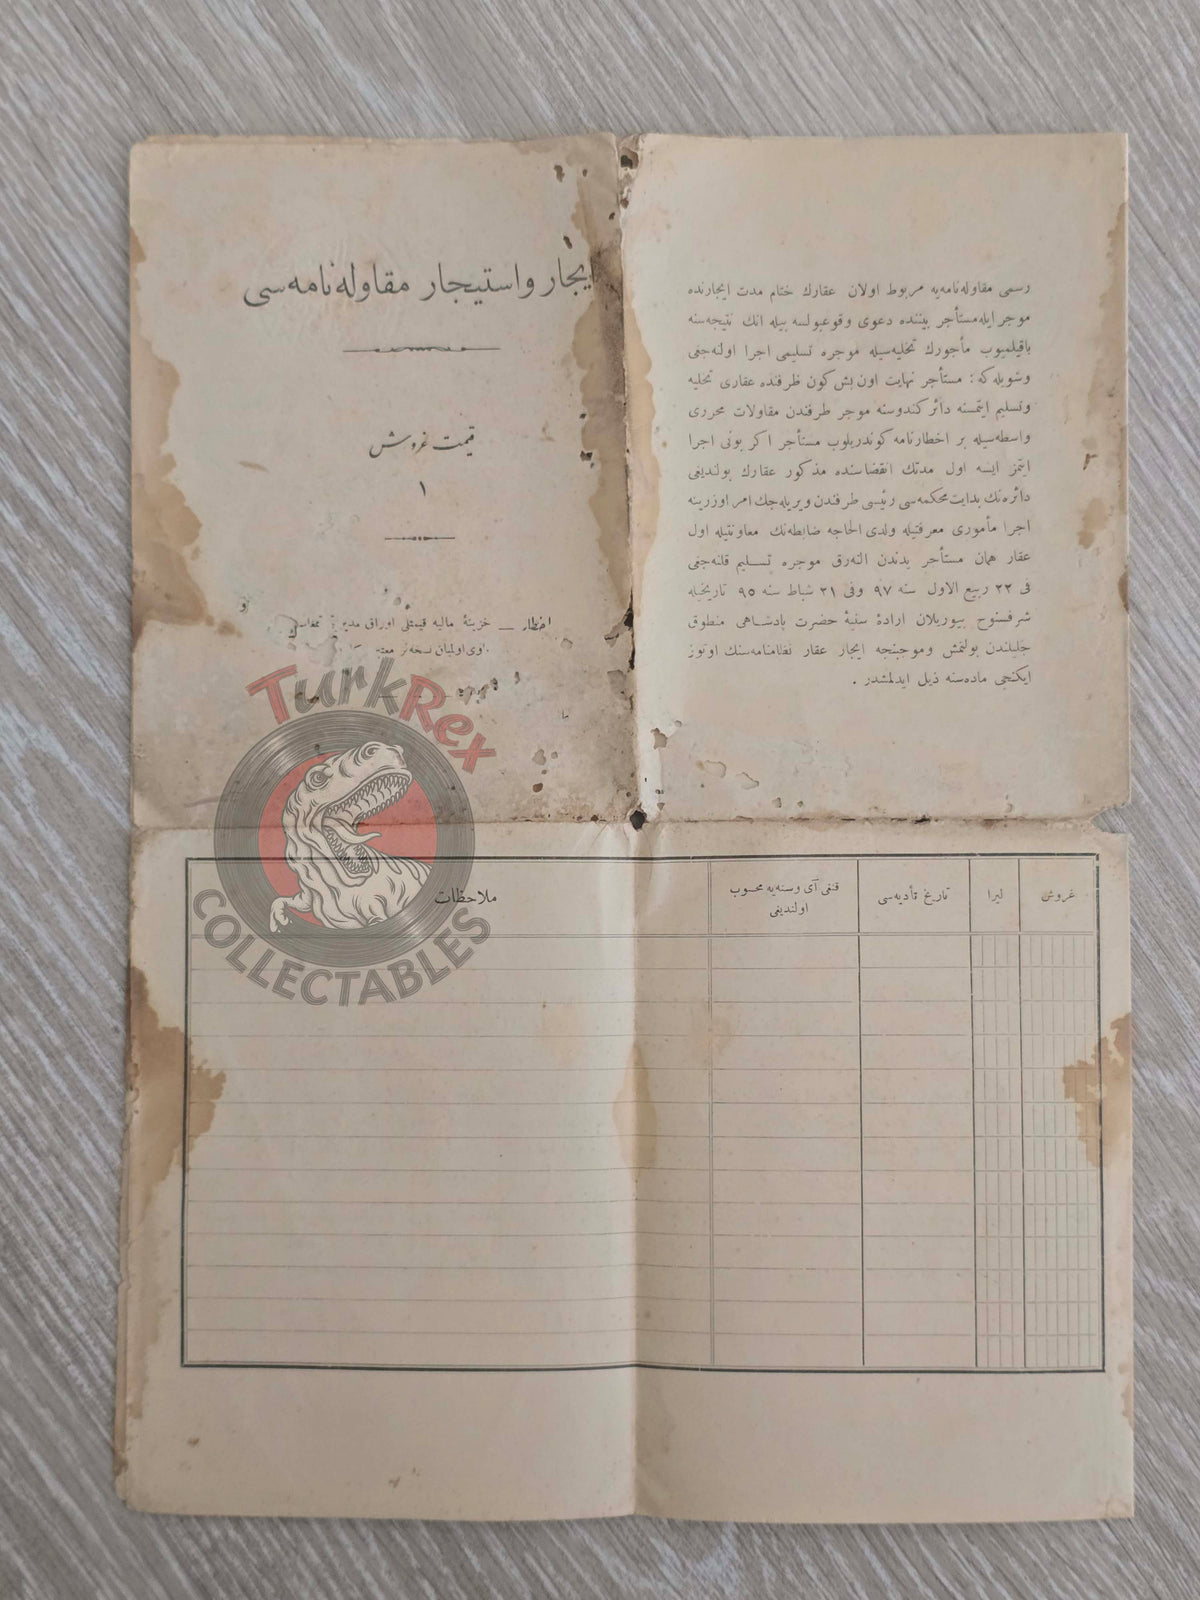 ایجار واستیجار مقاوله‌نامه‌سی
قیمت غروش
١
اخطار — خزینهٔ مالیه قیمتلی اوراق مدیر
اولمیان نسخه‌لر
رسمی مقاوله‌نامه‌یه مربوط اولان عقارك ختام مدت ایجارنده
موجر ایله مستأجر بیننده دعوی وقوعبولسه بیله انك نتیجه‌سنه
باقیلمیوب مأجورك تخلیه‌سیله موجره تسلیمی اجرا اولنه‌جغی
وشویله‌که : مستأجر نهایت اون بش کون ظرفنده عقاری تخلیه
وتسلیم ایتمسنه دائر کندوسنه موجر طرفندن مقاولات محرری
واسطه‌سیله بر اخطارنامه کوندریلوب مستأجر اکر بونی اجرا
ایتمز ایسه اول مدتك انقضاسنده مذکور عقارك بولندیغی
دائره‌نك بدایت محکمه‌سی رئیسی طرفندن ویریله‌جك امر اوزرینه
اجرا مأموری معرفتیله ولدی الحاجه ضابطه‌نك معاونتیله اول
عقار همان مستأجر یدندن النه‌رق موجره تسلیم قلنه‌جغی
فی ٢٢ ربیع الاول سنه ٩٧ وفی ٢١ شباط سنه ٩٥ تاریخیله
شرفسنوح بیوریلان ارادهٔ سنیهٔ حضرت پادشاهی منطوق
جلیلندن بولنمش وموجبنجه ایجار عقار نظامنامه‌سنك اوتوز
ایکنجی ماده‌سنه ذیل ایدلمشدر .
TurkRex
COLLECTABLES
غروش
لیرا
تاریخ تأدیه‌سی
قنغی آی وسنه‌یه محسوب
اولندیغی
ملاحظات